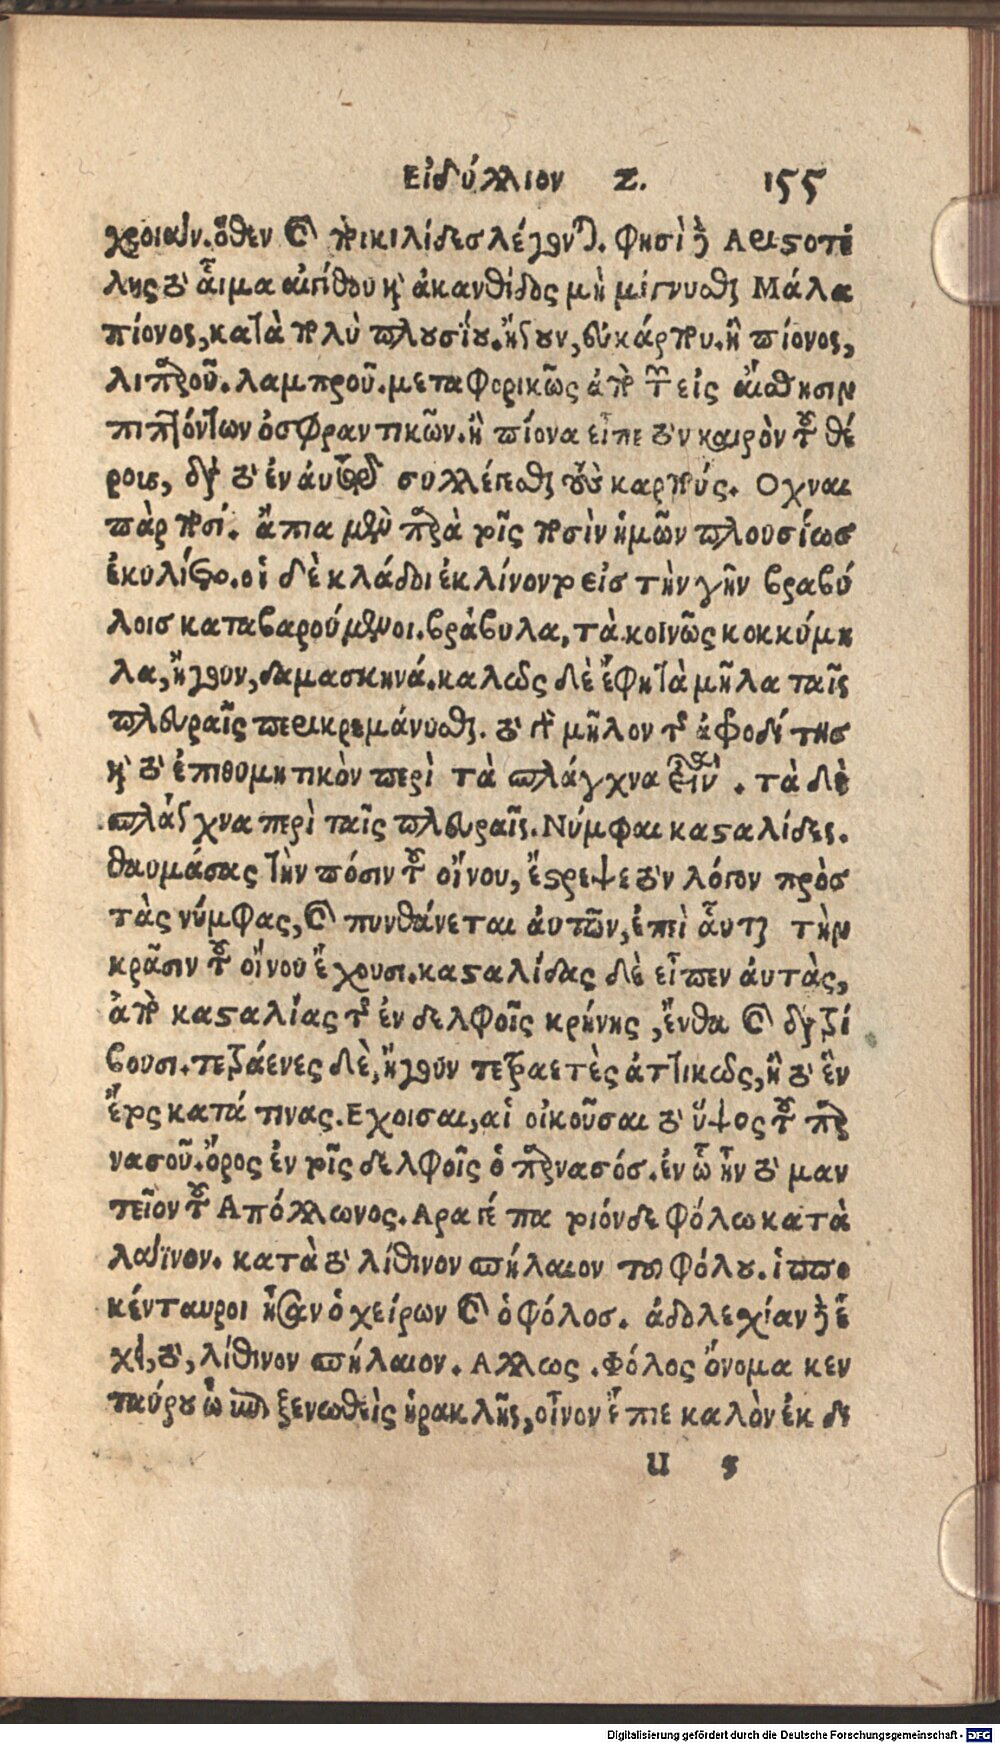 Εἰδύλλιον Ζ. 155
χροιαῖν. ὅθεν καὶ ποικιλίδες λέγονται. Φησὶ δὲ Αριστοτέ
λης τὸ αἷμα αἰγίθου καὶ ἀκανθίδος μὴ μίγνυσθαι Μάλα
πίονος, κατὰ πολὺ πλουσίου. ἤγουν, εὐκάρπου. ἢ πίονος,
λιπαροῦ. λαμπροῦ. μεταφορικῶς ἀπὸ τῶν εἰς αἴσθησιν
πιπτόντων ὀσφραντικῶν. ἢ πίονα εἶπε τὸν καιρὸν τοῦ θέ
ρους, διὰ τὸ ἐν αὐτῷ συλλέγεσθαι τοὺς καρπούς. Οχναι
πὰρ ποσί. ἄπια μὲν παρὰ τοῖς ποσὶν ἡμῶν πλουσίως
ἐκυλίετο. οἱ δὲ κλάδοι ἐκλίνοντο εἰς τὴν γῆν βραβύ
λοις καταβαρούμενοι. βράβυλα, τὰ κοινῶς κοκκύμη
λα, ἤγουν, δαμασκηνά. καλῶς δὲ ἔφη τὰ μῆλα ταῖς
πλευραῖς περικρεμάνυσθαι. τὸ γὰρ μῆλον τῆς ἀφροδίτης
καὶ τὸ ἐπιθυμητικὸν περὶ τὰ σπλάγχνα ἐστὶν. τὰ δὲ
σπλάγχνα περὶ ταῖς πλευραῖς. Νύμφαι κασταλίδες.
θαυμάσας τὴν πόσιν τοῦ οἴνου, ἔστρεψε τὸν λόγον πρὸς
τὰς νύμφας, καὶ πυνθάνεται αὐτῶν, ἐπεὶ αὗται τὴν
κρᾶσιν τοῦ οἴνου ἔχουσι. κασταλίδας δὲ εἶπεν αὐτὰς,
ἀπὸ κασταλίας τῆς ἐν δελφοῖς κρήνης, ἔνθα καὶ διατρί
βουσι. τετράενες δὲ, ἤγουν τετραετὲς ἀττικῶς, ἢ τὸ ἓν
ἔτος κατά τινας. Εχοισαι, αἱ οἰκοῦσαι τὸ ὕψος τοῦ παρ
νασοῦ. ὄρος ἐν τοῖς δελφοῖς ὁ παρνασός. ἐν ᾧ ἦν τὸ μαν
τεῖον τοῦ Απόλλωνος. Αραγέ πα τοιόνδε Φόλω κατὰ
λάϊνον. κατὰ τὸ λίθινον σπήλαιον τοῦ Φόλου. ἱππο
κένταυροι ἦσαν ὁ χείρων καὶ ὁ φόλος. ἀδολεχίαν δὲ ἔ
χει, τὸ, λίθινον σπήλαιον. Αλλως. Φόλος ὄνομα κεν
ταύρου ᾧ ἐπιξενωθεὶς ἡρακλῆς, οἶνον ἔπιε καλὸν ἐκ δε
u 5
Digitalisierung gefördert durch die Deutsche Forschungsgemeinschaft - DFG